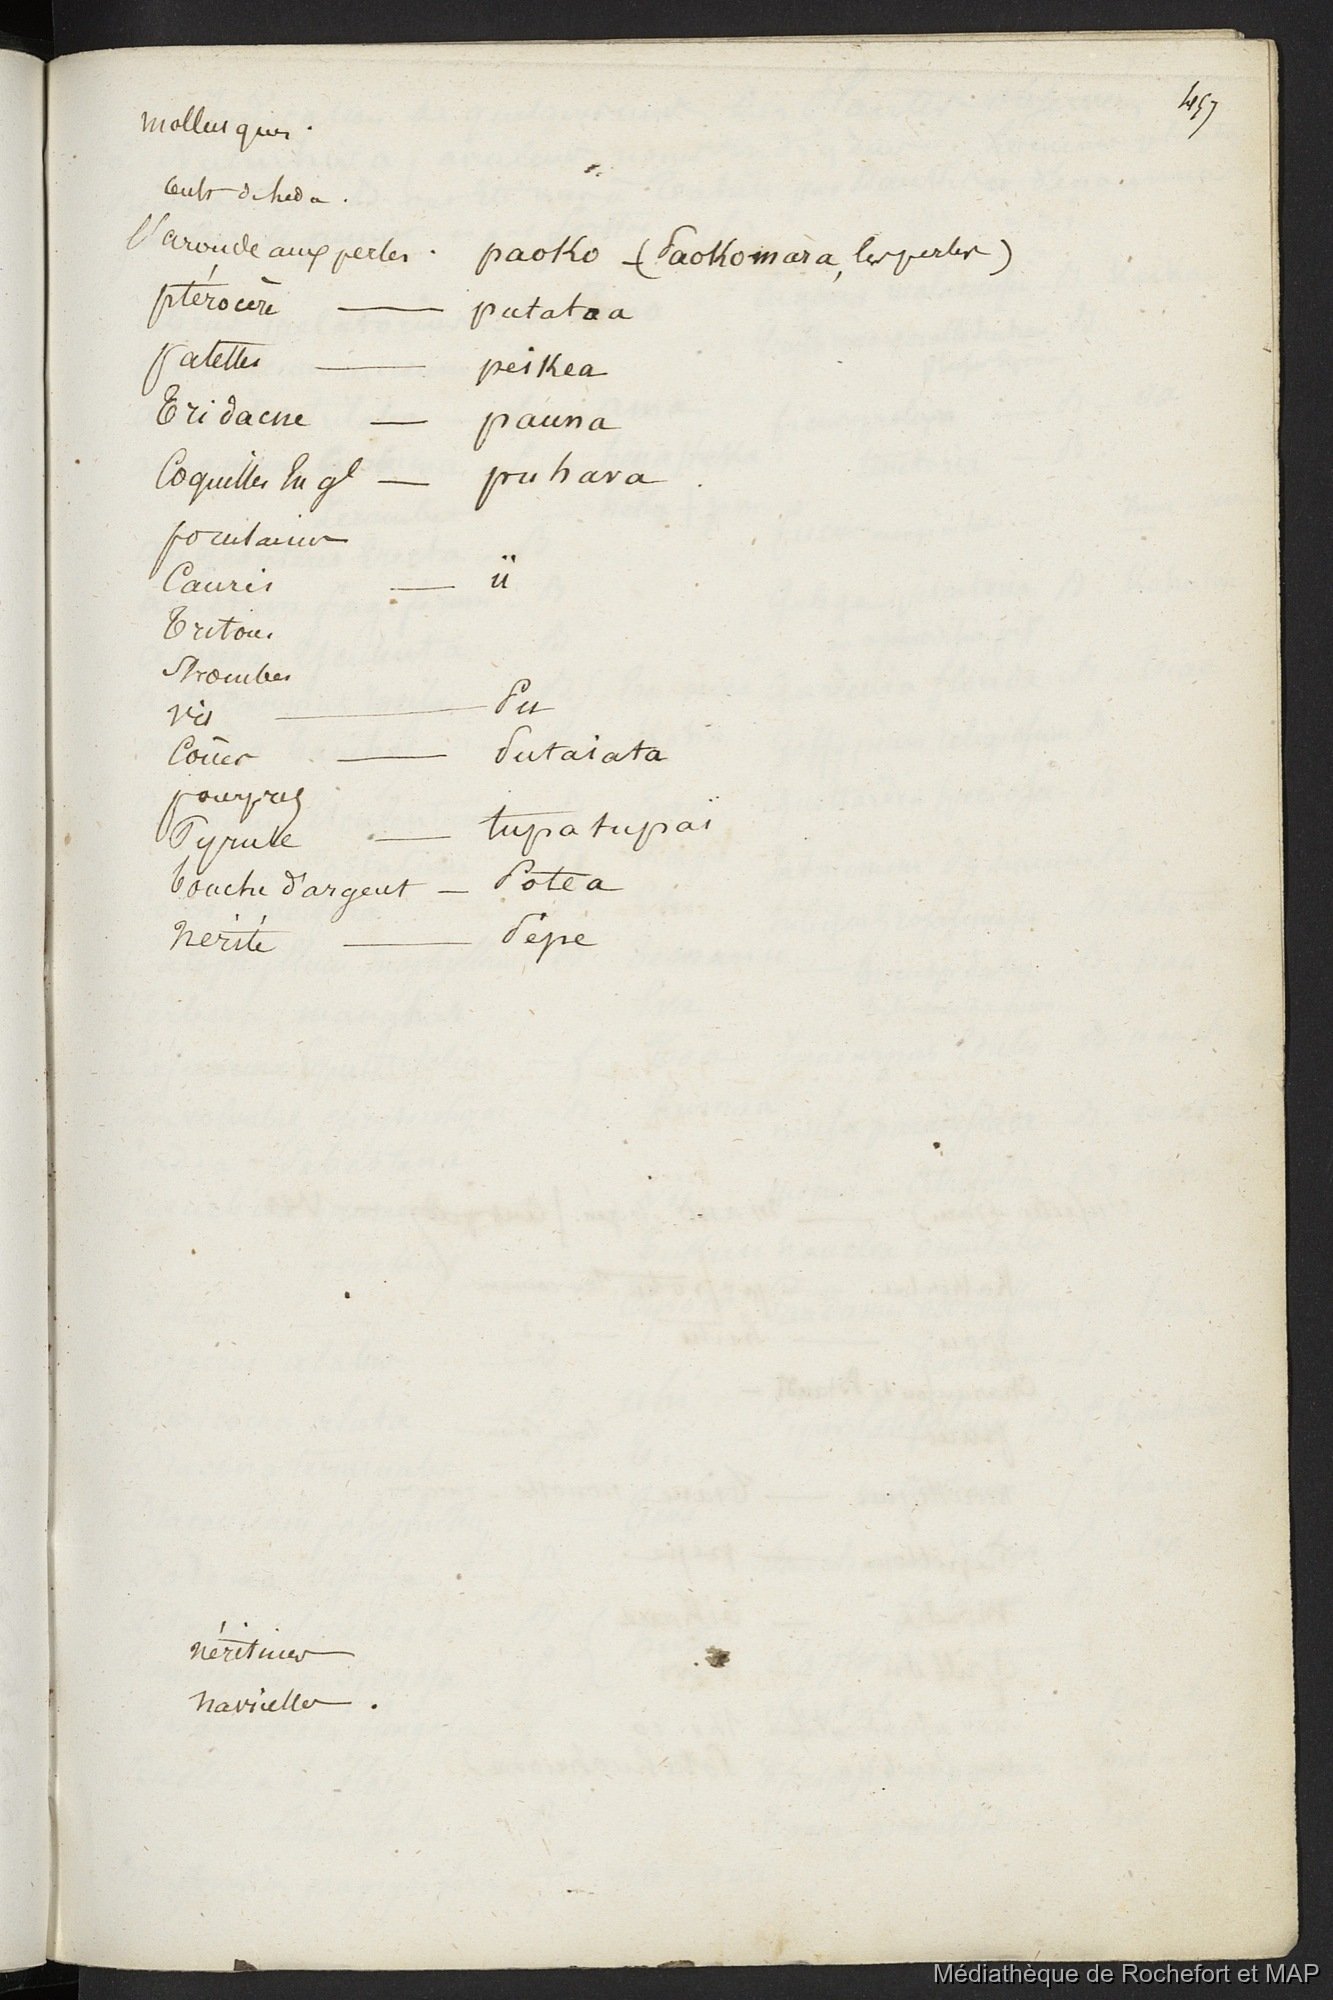 457
mollusques.
L'aronde aux perles. paoko - (Paokomara, les perles)
ptérocère — putataa
patelles — peikea
Tridacne — pauna
Coquilles En gl — puhava
porcelaines
Cauris — ü
Tritons
Strombes
vis — Pu
Cônes — Putaiata
pourpres
Pyrule — tupatupaï
bouche d'argent — Potea
nérite — Pépé
néritines
navicelles.
Médiathèque de Rochefort et MAP